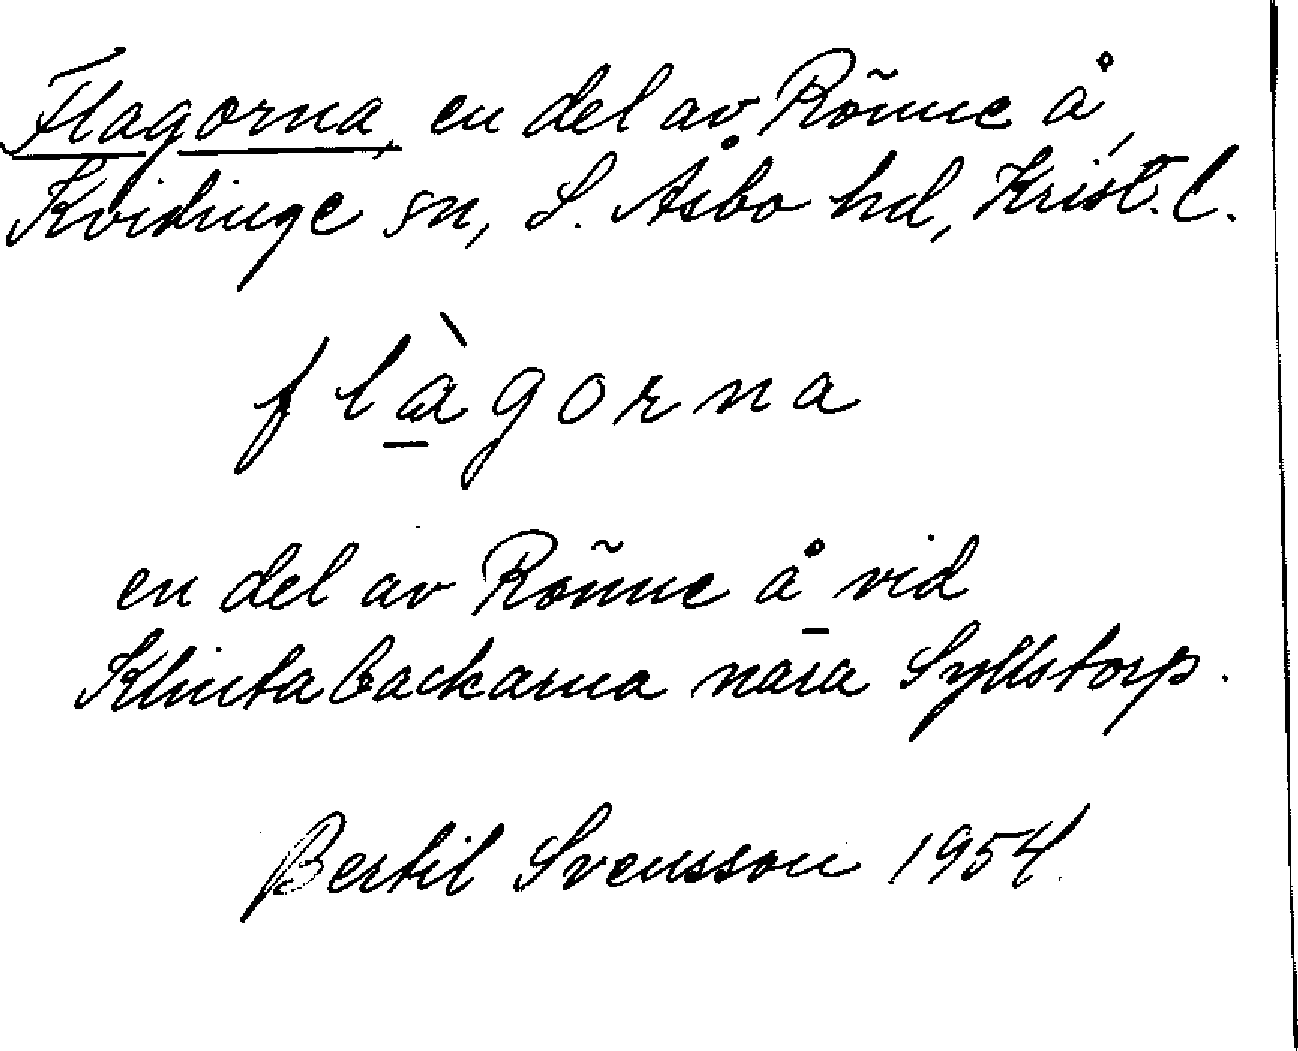 Flagorna, en del av Rönne å,
Kvidinge sn, S. Åsbo hd, Krist. l.
flàgorna
en del av Rönne å vid
Klintabackarna nära Syllstorp.
Bertil Svensson 1954.